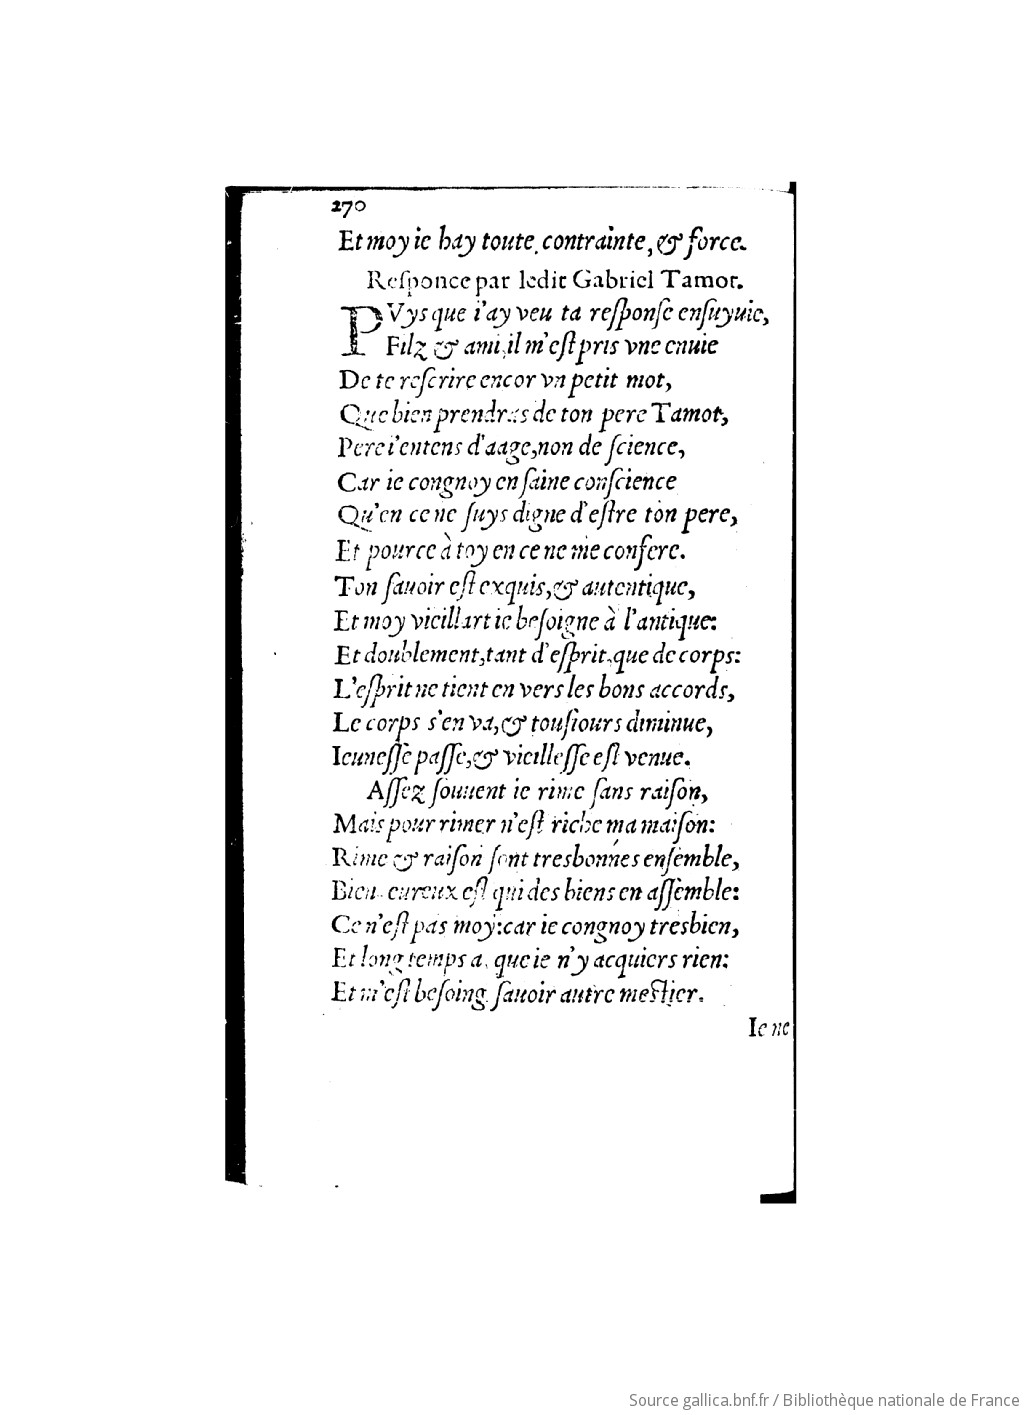 270
Et moy ie hay toute contrainte, & force.
Reſponce par ledit Gabriel Tamot.
PVys que i'ay veu ta reſponſe enſuyuie,
Filz & ami, il m'eſt pris vne enuie
De te reſcrire encor vn petit mot,
Que bien prendras de ton pere Tamot,
Pere i'entens d'aage, non de ſcience,
Car ie congnoy en ſaine conſcience
Qu'en ce ne ſuys digne d'eſtre ton pere,
Et pource à toy en ce ne me confere.
Ton ſauoir eſt exquis, & autentique,
Et moy vieillart ie beſoigne à l'antique:
Et doublement, tant d'eſprit, que de corps:
L'eſprit ne tient en vers les bons accords,
Le corps s'en va, & touſiours diminue,
Ieuneſſe paſſe, & vieilleſſe eſt venue.
Aſſez ſouuent ie rime ſans raiſon,
Mais pour rimer n'eſt riche ma maiſon:
Rime & raiſon ſont tresbonnes enſemble,
Bien eureux eſt qui des biens en aſſemble:
Ce n'eſt pas moy: car ie congnoy tresbien,
Et long temps a, que ie n'y acquiers rien:
Et m'eſt beſoing ſauoir autre meſtier.
Ie ne
Source gallica.bnf.fr / Bibliothèque nationale de France